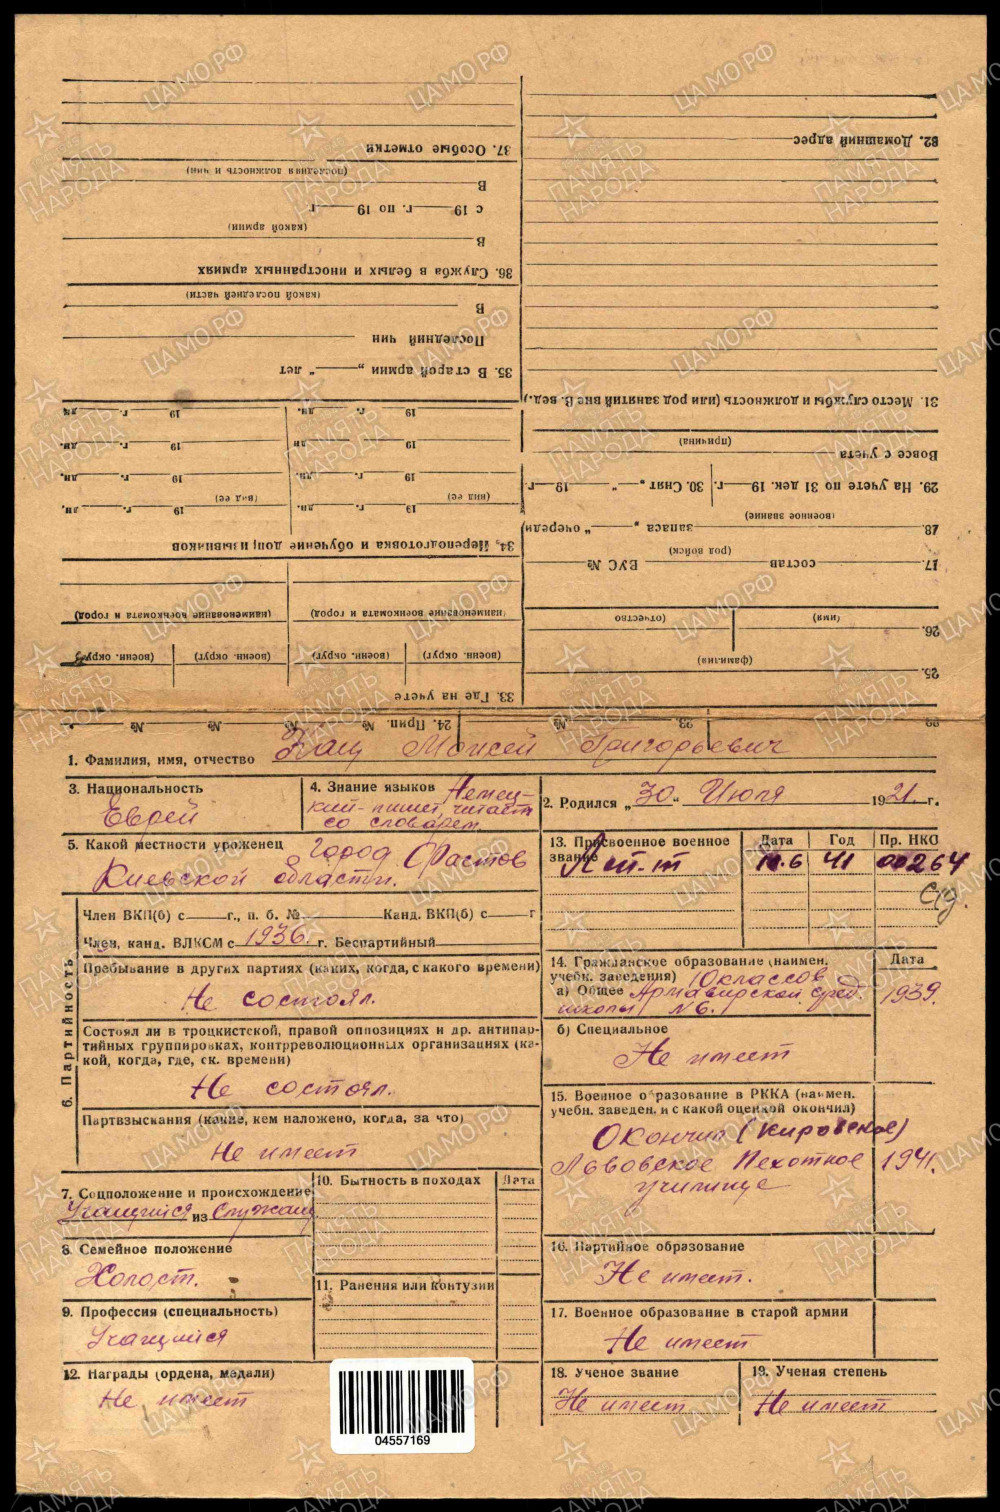 32. Домашний адрес
31. Место службы и должность (или род занятий вне В. вед.)
Вовсе с учета
(причина)
29. На учете по 31 дек. 19 г. 30. Снят „ “ 19 г.
(военное звание)
18. запаса „ “ очереди
(род войск)
17. состав ВУС №
26. (имя) (отчество)
25. (фамилия)
37. Особые отметки
(последняя должность и чин)
В
с 19 г. по 19 г
(какой армии)
В
36. Служба в белых и иностранных армиях
(какой последней части)
В
Последний чин
35. В старой армии „ “ лет
19 г. дн. 19 г. дн
19 г. дн 19 г. дн.
19 г. дн. 19 г. дн.
(вид ее) (вид ее)
19 г. дн. 19 г. дн.
34. Переподготовка и обучение допризывников
(наименование военкомата и город) (наименование военкомата и город)
(воен. округ) (воен. округ) (воен. округ) (воен. округ)
33. Где на учете
22. 23. № 24. Прип. № № № №
1. Фамилия, имя, отчество Кац Моисей Григорьевич
3. Национальность
Еврей
4. Знание языков Немец-
кий - пишет, читает
со словарем.
2. Родился „30“ Июля 1921. г.
5. Какой местности уроженец город Фастов
Киевской области.
13. Присвоенное военное звание Дата Год Пр. НКО
Л-т 10.6 41 00264
Член ВКП(б) с г., п. б. № Канд. ВКП(б) с г
Член, канд. ВЛКСМ с 1936. г. Беспартийный
6. Партийность
Пребывание в других партиях (каких, когда, с какого времени)
Не состоял.
Состоял ли в троцкистской, правой оппозициях и др. антипар-
тийных группировках, контрреволюционных организациях (ка-
кой, когда, где, ск. времени)
Не состоял.
Партвзыскания (какие, кем наложено, когда, за что)
Не имеет
14. Гражданское образование (наимен. Дата
учебн. заведения) 10 классов
а) Общее Армавирской сред. 1939.
школы N 6.
б) Специальное
Не имеет
15. Военное образование в РККА (наимен.
учебн. заведен. и с какой оценкой окончил)
Окончил (Кировское)
Львовское Пехотное 1941.
училище
7. Соцположение и происхождение
Учащийся из Служащ
10. Бытность в походах Дата
8. Семейное положение
Холост.
11. Ранения или контузии
9. Профессия (специальность)
Учащийся
12. Награды (ордена, медали)
Не имеет
16. Партийное образование
Не имеет.
17. Военное образование в старой армии
Не имеет
18. Ученое звание
Не имеет
19. Ученая степень
Не имеет
04557169
ЦАМО.РФ
ПАМЯТЬ НАРОДА